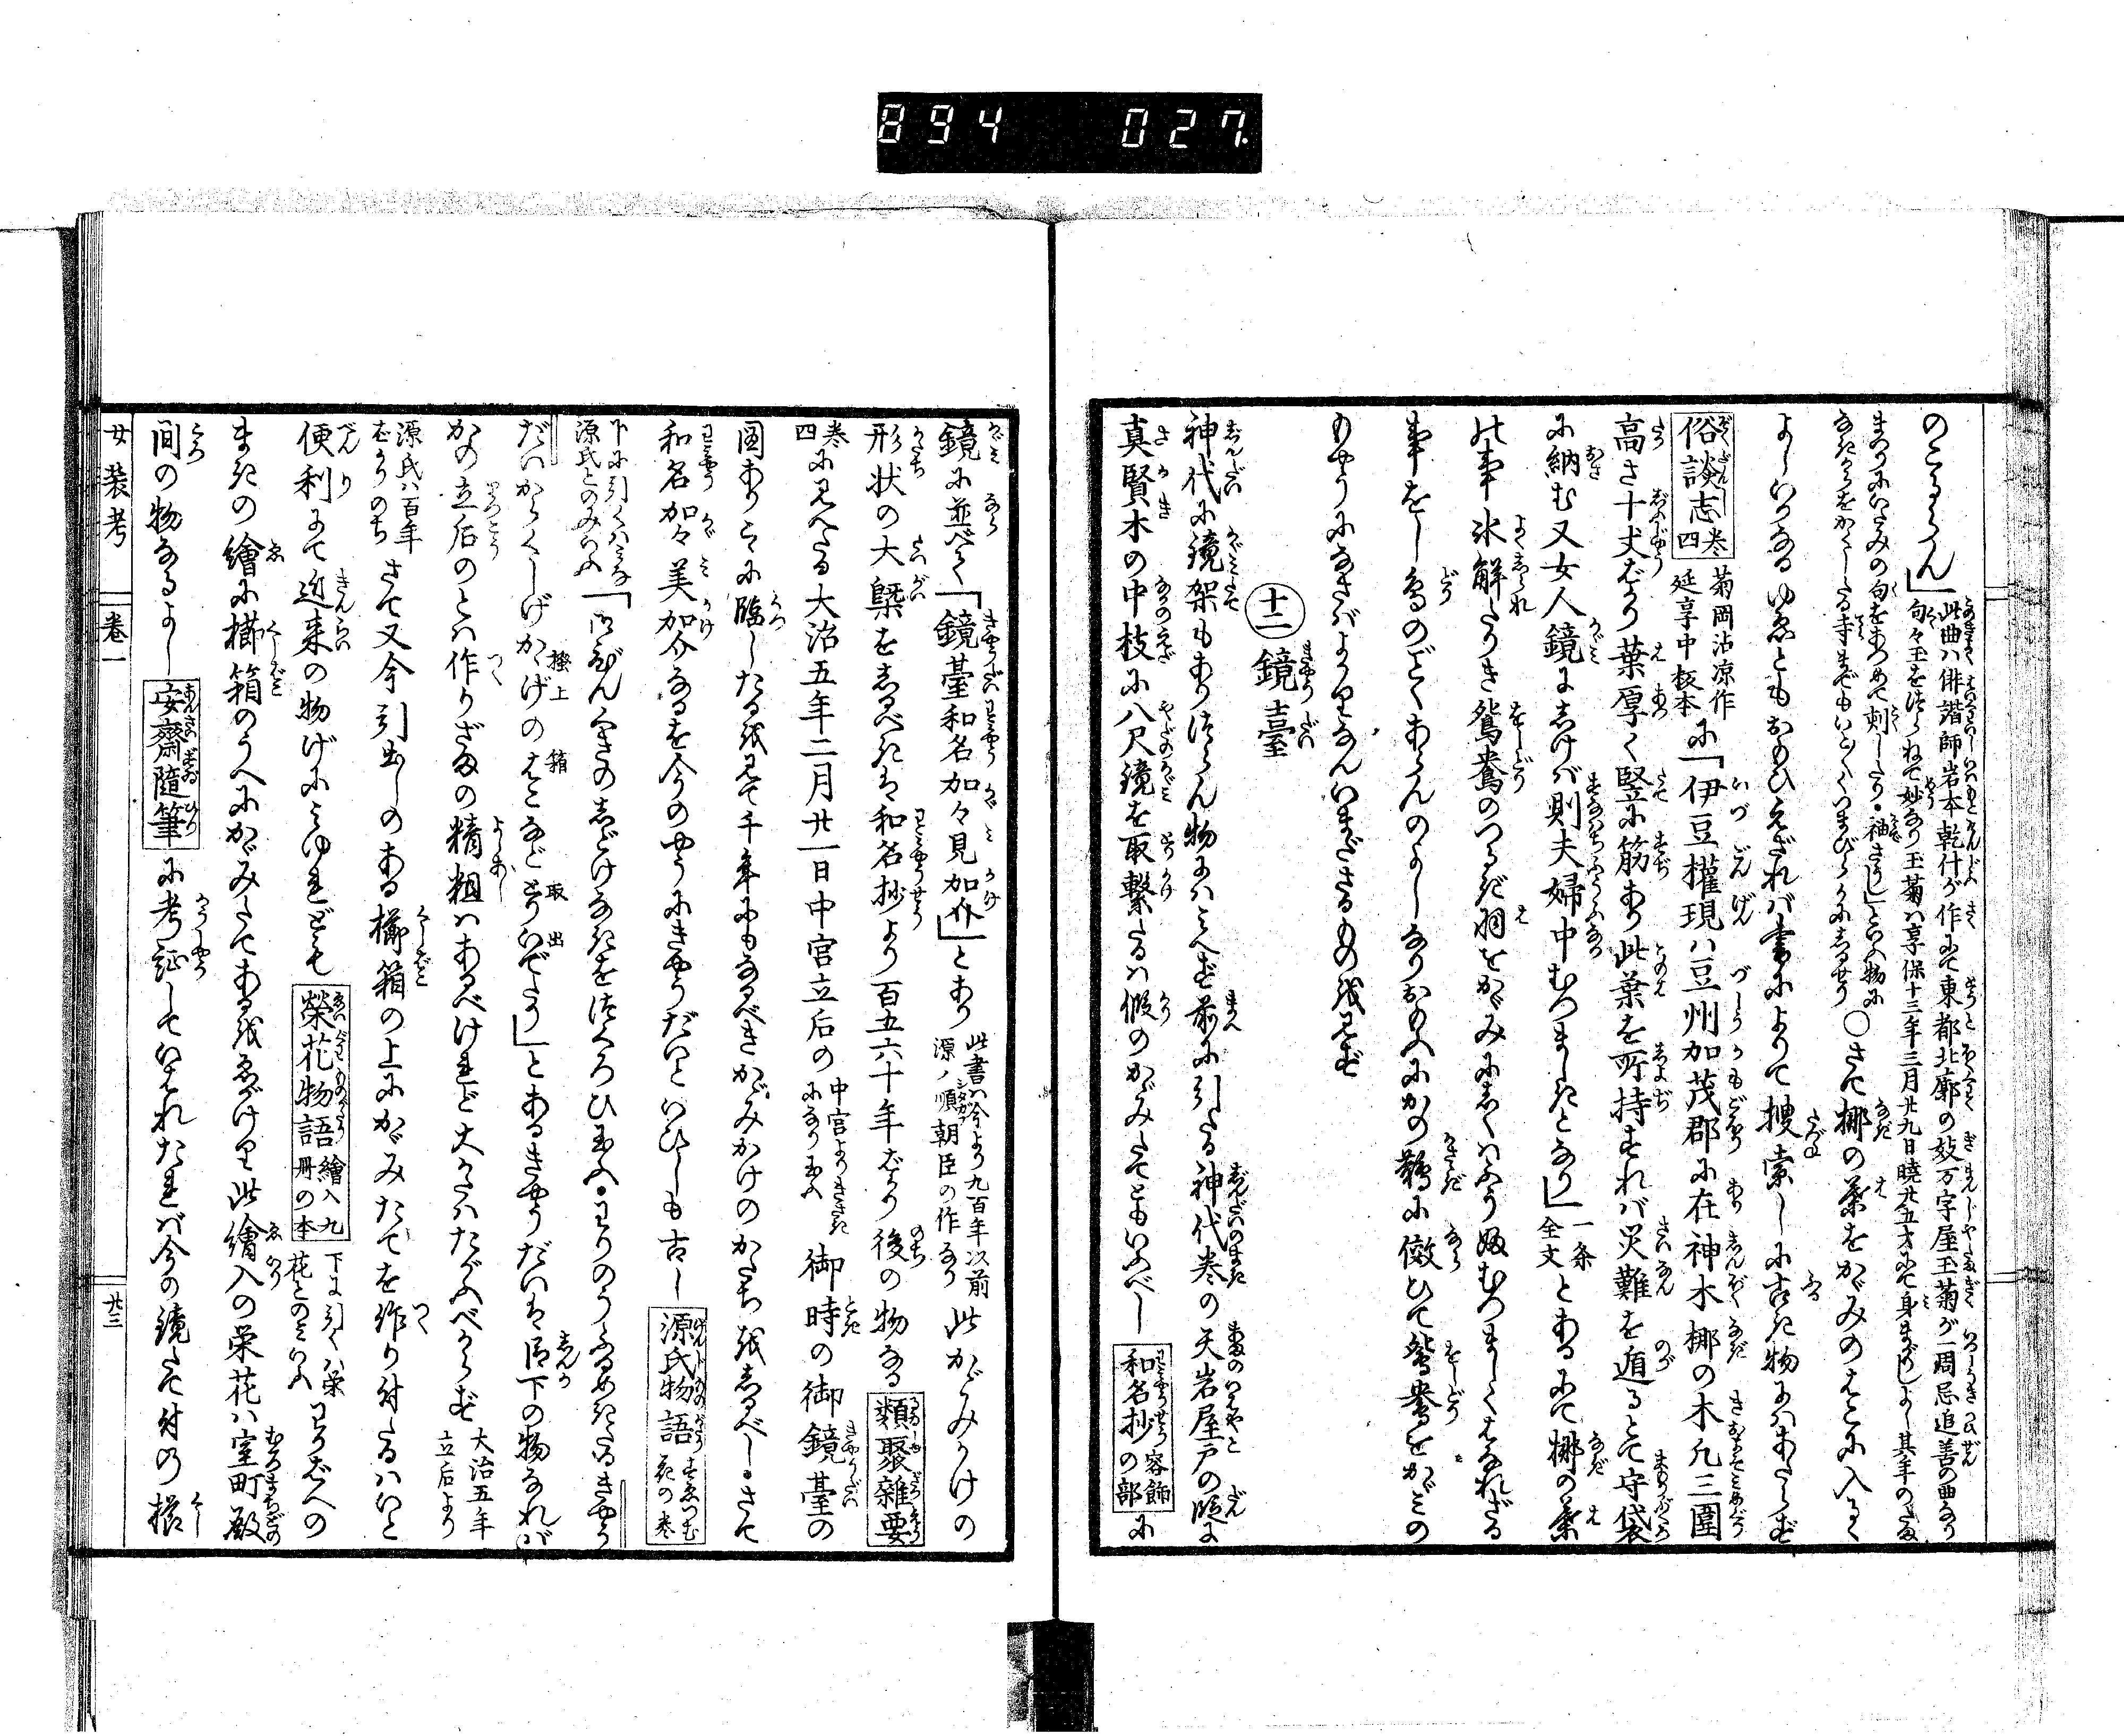 894 027.
のこるらん」此曲ハ俳諧師岩本乾什が作にて東都北廓の妓万字屋玉菊が一周忌追善の曲なり
句々玉をつらねて妙なり玉菊ハ享保十三年三月廿九日暁廿五才にて身まかりしよし其年のたま
まつりにいたみの句をあつめて刻したり・袖さうし」といふ物に
○さて梛の葉をかゞみのはこに入るゝ
よしいかなるゆゑともおもひえざれバ書によりて捜索しに古き物にハあたらず
俗談志 巻四 菊岡沾凉作 延享中板本 に「伊豆権現ハ豆州加茂郡に在神木梛の木凡三囲
高さ十丈ばかり葉厚く竪に筋あり此葉を所持すれバ災難を遁るとて守袋
に納む又女人鏡にしけバ則夫婦中むつましきとなり」一条全文とあるにて梛の葉
の事氷解たりき鴛鴦のつるぎ羽をかゞみにしくハふうふむつましくはなれざる
事をし鳥のごとくあらんのよしなりおもふにかの鵲に倣ひて鴛鴦をかゞみの
もやうになさバよかりなんいまださるもの越見ず
十二 鏡臺
神代に鏡架もありつらん物にハみえず前に引たる神代巻の天岩屋戸の段に
真賢木の中枝に八尺鏡を取繋たるハ仮のかゞみたてともいふべし 和名抄 容飾の部 に
鏡に並べて「鏡臺和名加々見加介」とあり 此書ハ今より九百年以前 源ノ順朝臣の作なり 此かゞみかけの
形状の大槩をしるべきは和名抄より百五六十年ばかり後の物なる 類聚雑要
巻四 に見へたる大治五年二月廿一日中宮立后の 中宮よりきさき になり玉ふ 御時の御鏡臺の
図ありこれに臨したる越見て千年にもなるべきかゞみかけのかたち越しるべし・さて
和名加々美加介なるを今のやうにきやうだいといひしも古し 源氏物語 すゑつむ花の巻
下に引くハミな 源氏とのみいふ 「御びんぐきのしどけなきをつくろひ玉ふ・わりのうふるめきたるきやう
だいからくしげかゝげのはこなど とりいでたり」とあるきやうだいは后下の物なれバ
かの立后のとハ作りざまの精粗ハあるべけれど大かたハたがふべからず 大治五年 立后より
源氏ハ百年 ばかりのち さて又今引出しのある櫛箱の上にかゞみたてを作り付たるハいと
便利にて近来の物げにミゆれども 栄花物語 絵入九冊の本 下に引くハ栄花とのミいふ わらはべの
まきの絵に櫛箱のうへにかゞみたてある越ゑがけり此絵入の栄花ハ室町殿
間の物なるよし 安齋随筆 に考証していはれたれバ今の鏡たて付の櫛
女装考 巻一 廿三